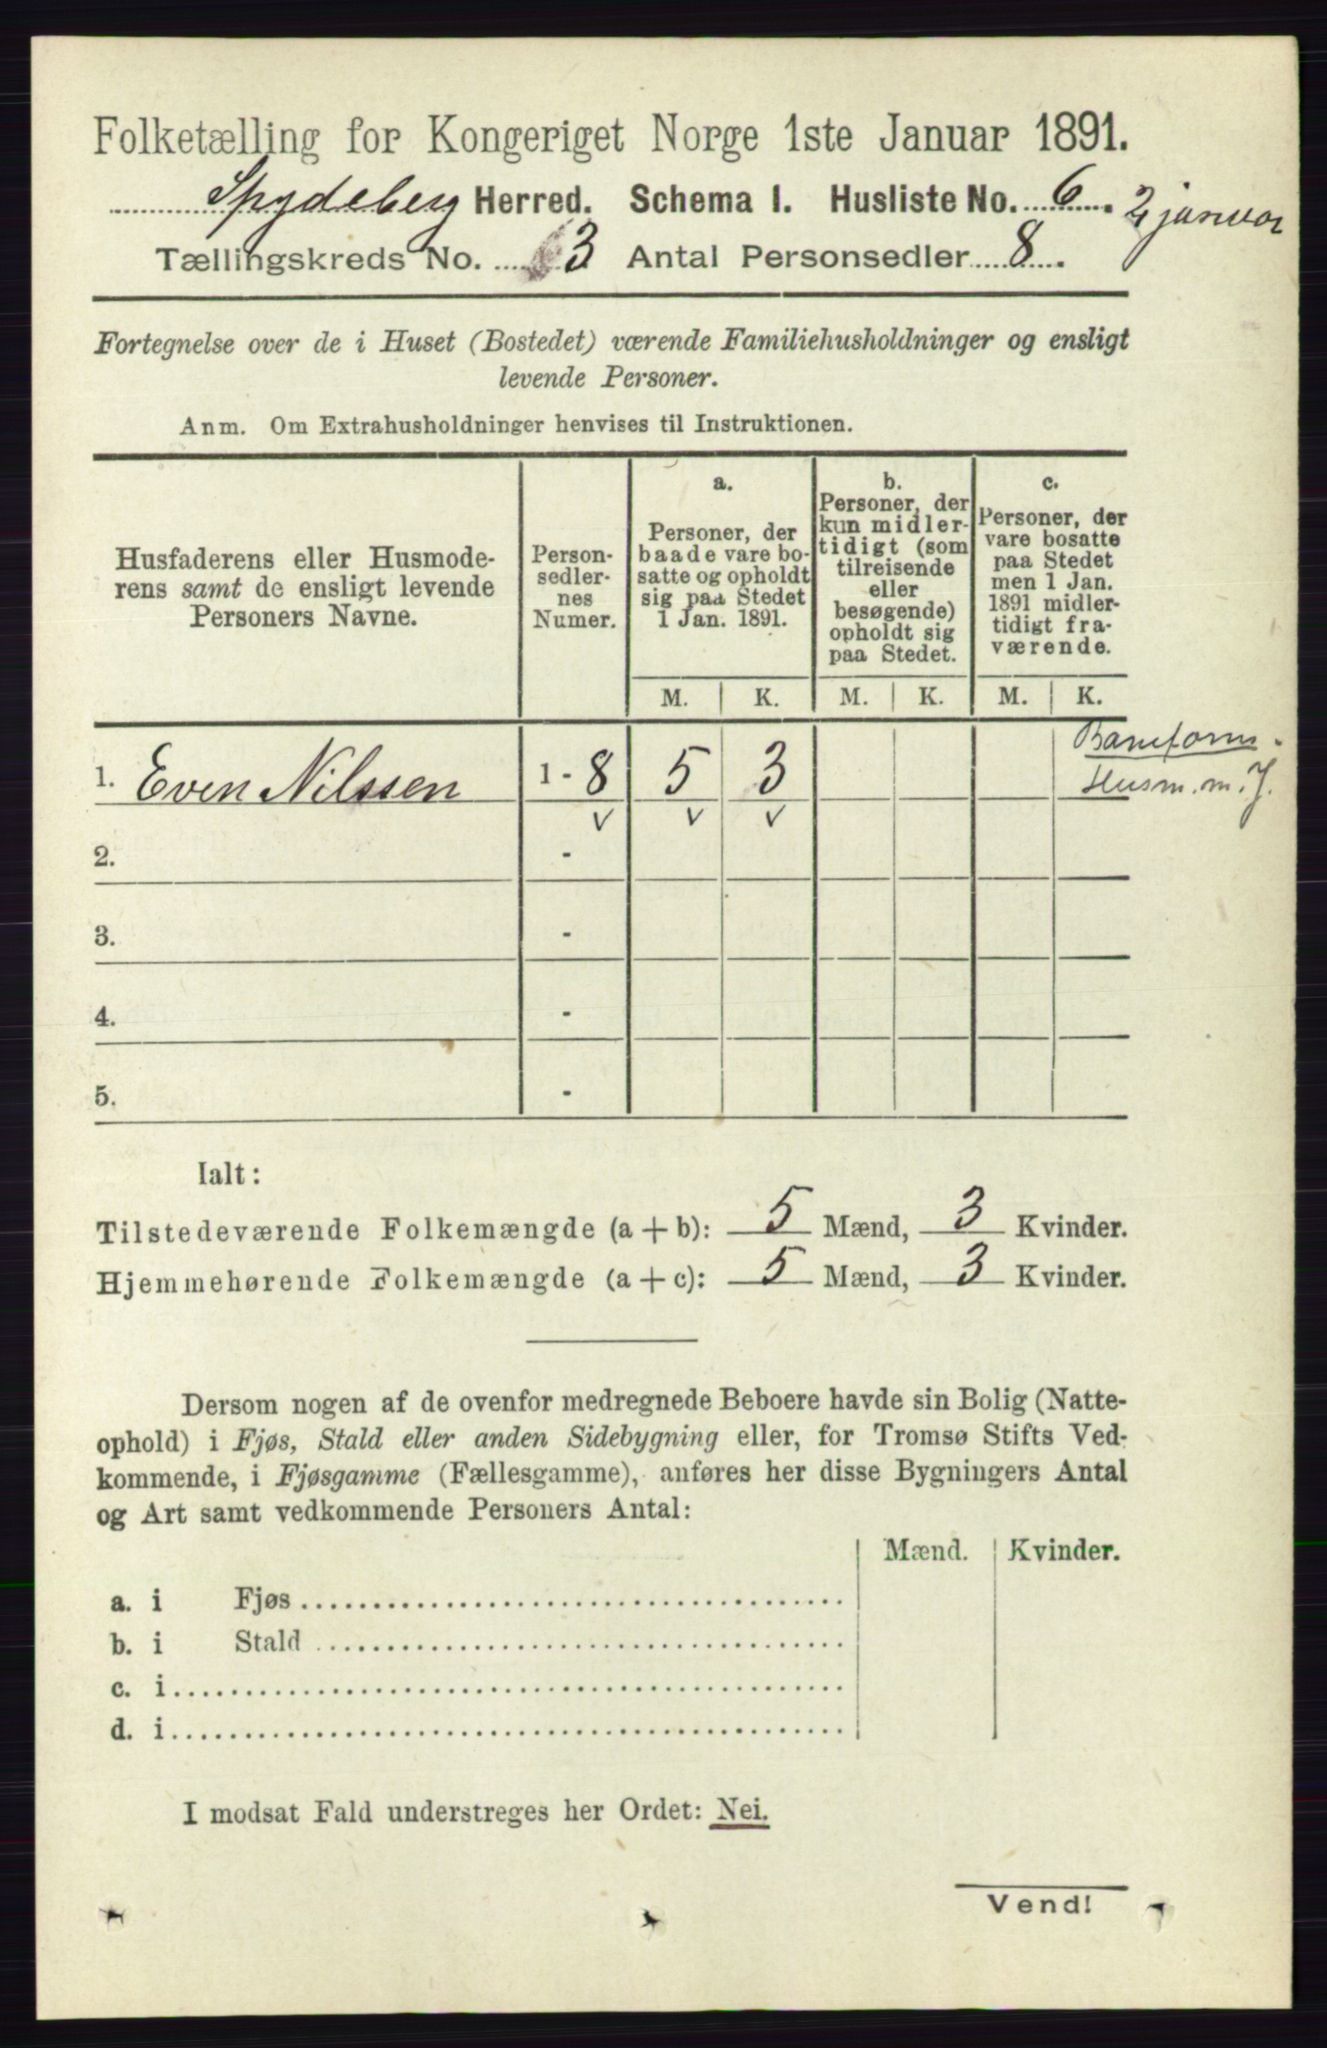 Folketælling for Kongeriget Norge 1ste Januar 1891.
Spydeberg Herred. Schema I. Husliste No. 6. 2 januar
Tællingskreds No. 3 Antal Personsedler 8.
Fortegnelse over de i Huset (Bostedet) værende Familiehusholdninger og ensligt
levende Personer.
Anm. Om Extrahusholdninger henvises til Instruktionen.
Husfaderens eller Husmode-
rens samt de ensligt levende
Personers Navne.
Person-
sedler-
nes
Numer.
a.
Personer, der
baade vare bo-
satte og opholdt
sig paa Stedet
1 Jan. 1891.
b.
Personer, der
kun midler-
tidigt (som
tilreisende
eller
besøgende)
opholdt sig
paa Stedet.
c.
Personer, der
vare bosatte
paa Stedet
men 1 Jan.
1891 midler-
tidigt fra-
værende.
M. K. M. K. M. K.
1. Even Nilssen 1 - 8 5 3
Husm. m. J.
v v v
2. -
3. -
4. -
5. -
Ialt:
Tilstedeværende Folkemængde (a + b): 5 Mænd, 3 Kvinder.
Hjemmehørende Folkemængde (a + c): 5 Mænd, 3 Kvinder.
Dersom nogen af de ovenfor medregnede Beboere havde sin Bolig (Natte-
ophold) i Fjøs, Stald eller anden Sidebygning eller, for Tromsø Stifts Ved-
kommende, i Fjøsgamme (Fællesgamme), anføres her disse Bygningers Antal
og Art samt vedkommende Personers Antal:
Mænd. Kvinder.
a. i Fjøs
b. i Stald
c. i
d. i
I modsat Fald understreges her Ordet: Nei.
Vend!